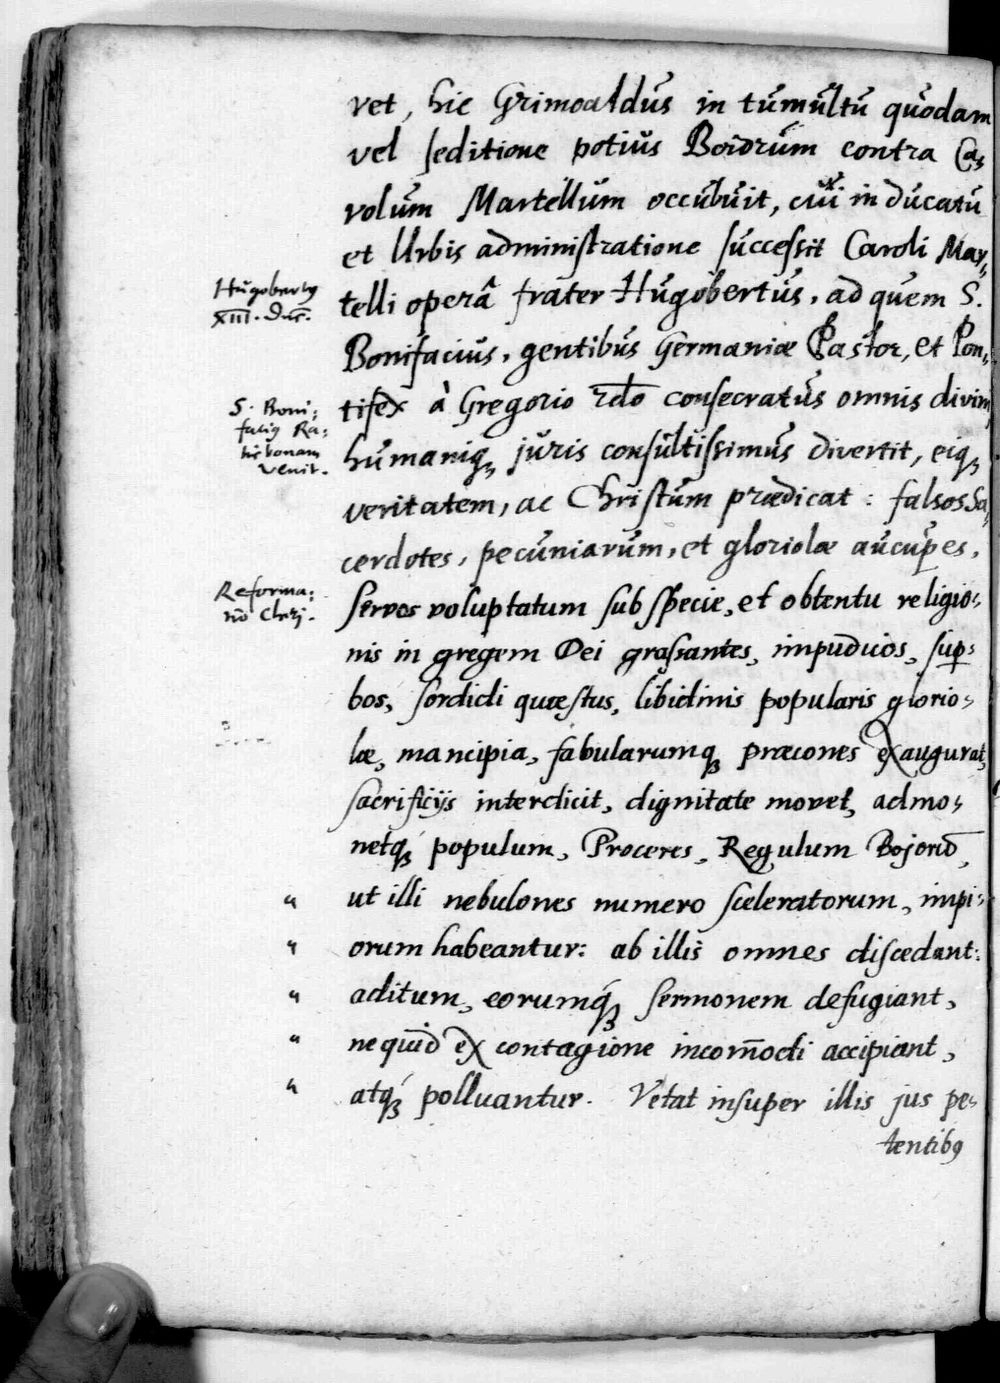 vet, hic Grimoaldus in tumultu quodam
vel seditione potius Boiorum contra Ca=
rolum Martellum occubuit, cui in ducatu
et Urbis administratione successit Caroli Mar=
Hugobertq
XIII. Dux.
telli operâ frater Hugobertus, ad quem S.
Bonifacius, gentibus Germaniæ Pastor, et Pon=
S. Boni:
faciq Ra:
tisbonam
venit.
tifex à Gregorio 2do consecratus omnis divini
humaniq; juris consultissimus divertit, eiq;
veritatem, ac Christum prædicat: falsos Sa=
cerdotes, pecuniarum, et gloriolæ aucupes,
Reforma:
Servos voluptatum sub specie, et obtentu religio=
nis in gregem Dei grassantes, impudicos, sup=
bos, sordidi quæstus, libidinis popularis glorio=
læ, mancipia, fabularumq; præcones exaugurat,
sacrificijs interdicit, dignitate movet, admo=
netq́; populum, Proceres, Regulum Bojorū,
" ut illi nebulones numero sceleratorum, impi=
" orum habeantur: ab illis omnes discedant:
" aditum, eorumq́; sermonem defugiant,
" ne quid ex contagione incom̄odi accipiant,
" atq́; polluantur. Vetat insuper illis jus pe=
tentibq